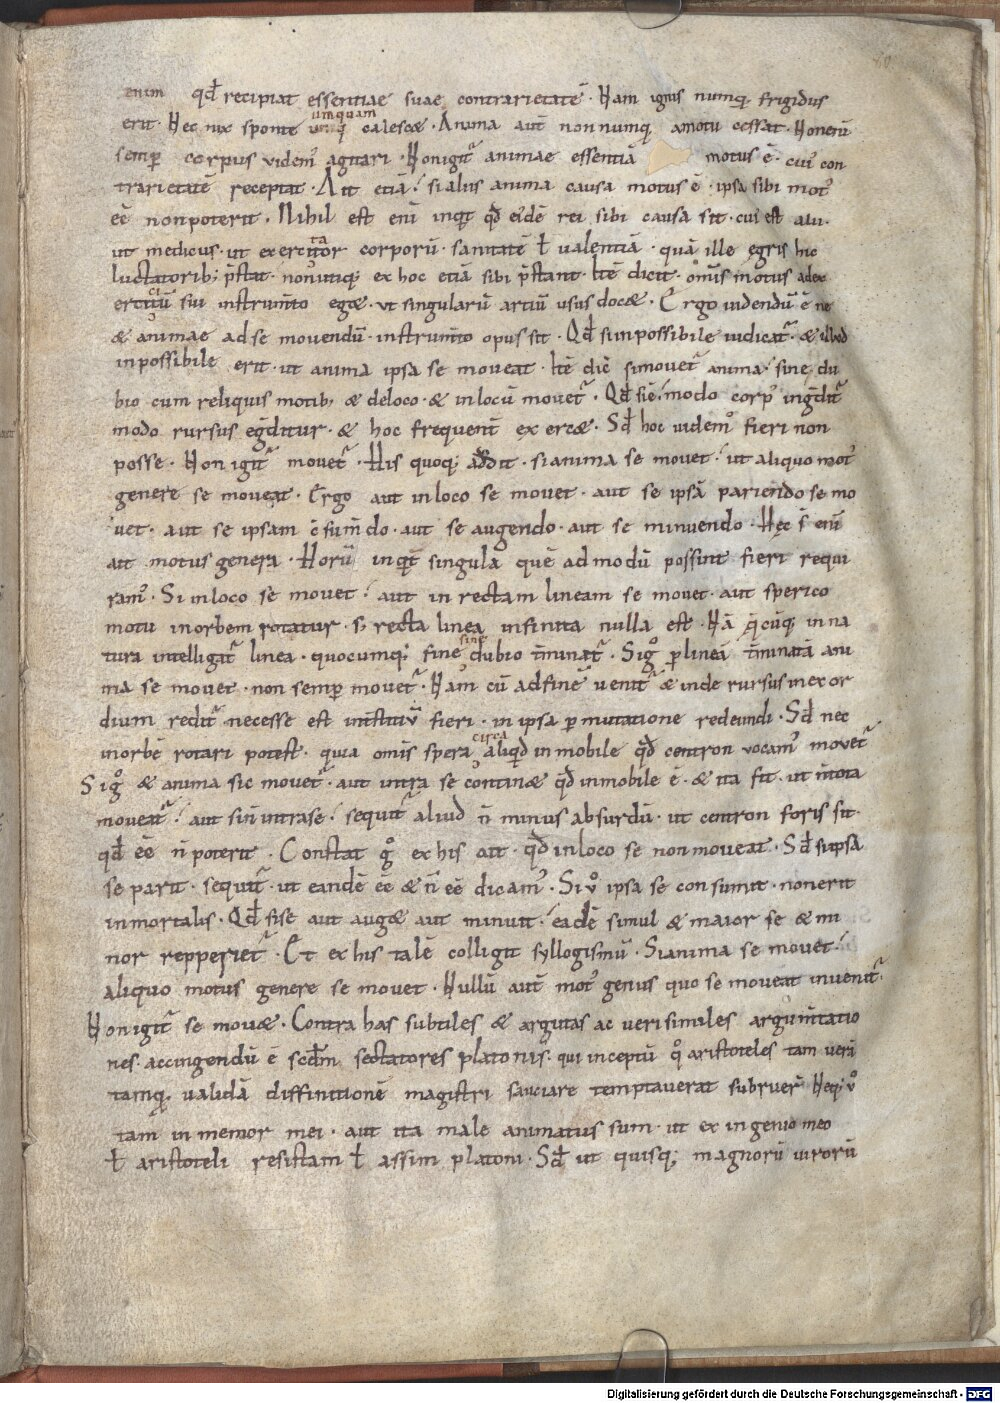 enim qd̄ recipiat essentiae suae contrarietatē · Nam ignis numq̨ frigidus
erit · Nec nix sponte umquam calescæ · Anima aut̄ non numq̨ a motu cessat · Non enī
semp̄ corpus videm᾽ agitari · Non igit᷑ animae essentiā motus ē · cui᾽ con
trarietatē receptat · Ait etiā · si alus anima causa motus ē · ipsa sibi mot᾽
eē non poterit · Nihil est enī inqt̄ qd̄ ei᾽dē rei sibi causa sit · cui est alii ·
ut medicus · ut exercitator corporū · sanitatē ł valentiā · quā ille egris hic
luctatorib; p̄stat · non utiq; ex hoc etiā sibi p̄stant · Itē dicit · omīs motus ad ex
ercitiū sui instrum̄to egæ · ut singularū artiū usus docæ · Ergo videndū ē ne
& animae ad se movendū instrum̄to opus sit · Qd̄ si inpossibile iudicat᷑ · & illud
inpossibile erit · ut anima ipsa se moveat · Itē dic̄ si movet᷑ anima · sine du
bio cum reliquis motib; & de loco & in locū movet᷑ · Qd̄ si ē · modo corp᾽ ingd̄it᷑
modo rursus egd̄itur · & hoc frequent̄ exercæ · Sd̄ hoc videm᾽ fieri non
posse · Non igit᷑ movet᷑ · His quoq; addit · si anima se movet · ut aliquo mot᾽
genere se moveat · Ergo aut in loco se movet · aut se ipsā pariendo se mo
vet · aut se ipsam c̄sum̄do · aut se augendo · aut se minuendo · Hęc s̄ enī
ait motus genera · Horū inqt̄ singula quē ad modū possint fieri requi
ram᾽ · Si in loco se movet · aut in rectam lineam se movet · aut sperico
motu in orbem rotatur · s; recta linea infinita nulla est · Nā q̄cūq; in na
tura intelligat᷑ linea · quocumq; fine sine dubio t̄minat᷑ · Sig᾽ p̄ lineā t̄minatā ani
ma se movet · non semp̄ movet᷑ · Nam cū ad finē venit᷑ & inde rursus in exor
dium redit᷑ necesse est int̄stitiū fieri · in ipsa p̄mutatione redeundi · Sd̄ nec
in orbē rotari potest · quia omīs spera circa aliqd̄ inmobile qd̄ centron vocam᾽ movet᷑
Sig᾽ & anima sic movet᷑ · aut intra se continæ qd̄ inmobile ē · & ita fit · ut n̄ tota
moveat᷑ · aut si n̄ intra se · sequit᷑ aliud n̄ minus absurdū · ut centron foris sit ·
qd̄ eē n̄ poterit · Constat g᾽ ex his ait · qd̄ in loco se non moveat · Sd̄ si ipsa
se parit · sequit᷑ ut eandē eē & n̄ eē dicam᾽ · Si v᾽ ipsa se consumit · non erit
inmortalis · Qd̄ si se aut augæ aut minuit · eadē simul & maior se & mi
nor repperiet᷑ · Et ex his talē colligit syllogismū · Si anima se movet ·
aliquo motus genere se movet · Nullū aut̄ mot᾽ genus quo se moveat invenit᷑ ·
Non igit᷑ se movæ · Contra has subtiles & argutas ac verisimiles argum̄tatio
nes · accingendū ē scd̄m sectatores platonis · qui inceptū q᾽ aristoteles tam verā
tamq; validā diffinitionē magistri sauciare temptaverat subruer̄ Neq; v᾽
tam inmemor mei · aut ita male animatus sum · ut ex ingenio meo
ł aristoteli resistam ł assim platoni · Sd̄ ut quisq; magnorū virorū
Digitalisierung gefördert durch die Deutsche Forschungsgemeinschaft · DFG